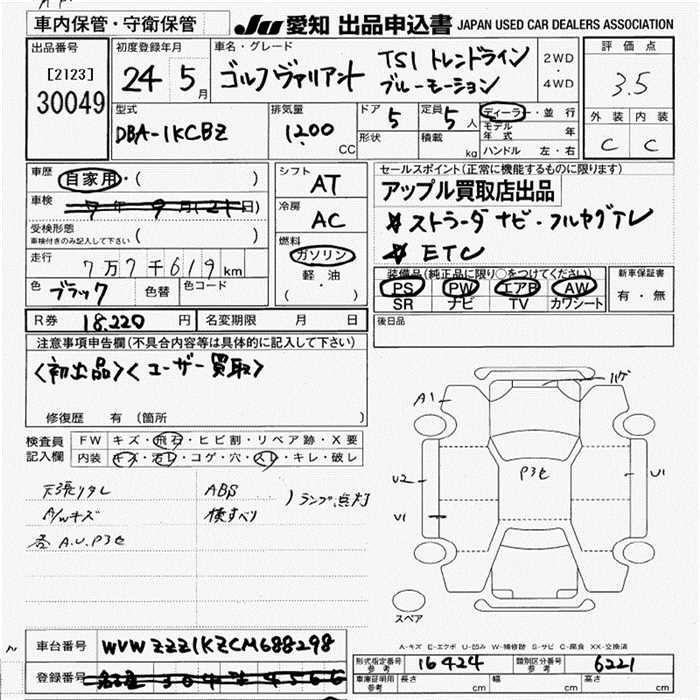 車内保管・守衛保管 JU 愛知 出品申込書 JAPAN USED CAR DEALERS ASSOCIATION
出品番号 初度登録年月 車名・グレード 評価点
[2123] 24 5月 ゴルフヴァリアント TSI トレンドライン 2WD
30049 ブルーモーション ・ 4WD 3.5
型式 排気量 ドア 定員 ディーラー・並行 外装 内装
DBA-1KCBZ 1200 CC 5 5人 モデル年式 年 C C
形状 積載 kg ハンドル 左・右
車歴 自家用・( ) シフト AT セールスポイント(正常に機能するものに限ります)
車検 7年9月(21日) 冷房 AC アップル買取店出品
受検形態 ( ) ストラーダ ナビ・フルセグTV
車検付きのみ記入して下さい 燃料 ETC
走行 7万7千619km ガソリン 装備品(純正品に限り○をつけてください) 新車保証書
軽・油 PS PW エアB AW 有・無
色 ブラック 色替 色コード ( ) SR ナビ TV カワシート
R券 18.220円 名変期限 月 日 後日品
注意事項申告欄(不具合内容等は具体的に記入して下さい)
<初出品><ユーザー買取>
修復歴 有 (箇所
検査員 FW キズ・飛石・ヒビ割・リペア跡・X要
記入欄 内装 キズ・汚レ・コゲ・穴・スレ・キレ・破レ
天張リタレ ABS
A/Wキズ 横すべり )ランプ点灯
各 A.U.P3セ
A1 ハゲ
P3セ
U2 U1
U1
スペア
A-キズ E-エクボ U-凹み W-補修跡 S-サビ C-腐食 XX-交換済
車台番号 WVWZZZ1KZCM688298
形式指定番号 参考 16424 類別区分番号 参考 6221
登録番号
車庫証明用 参考 長さ cm 幅 cm 高さ cm